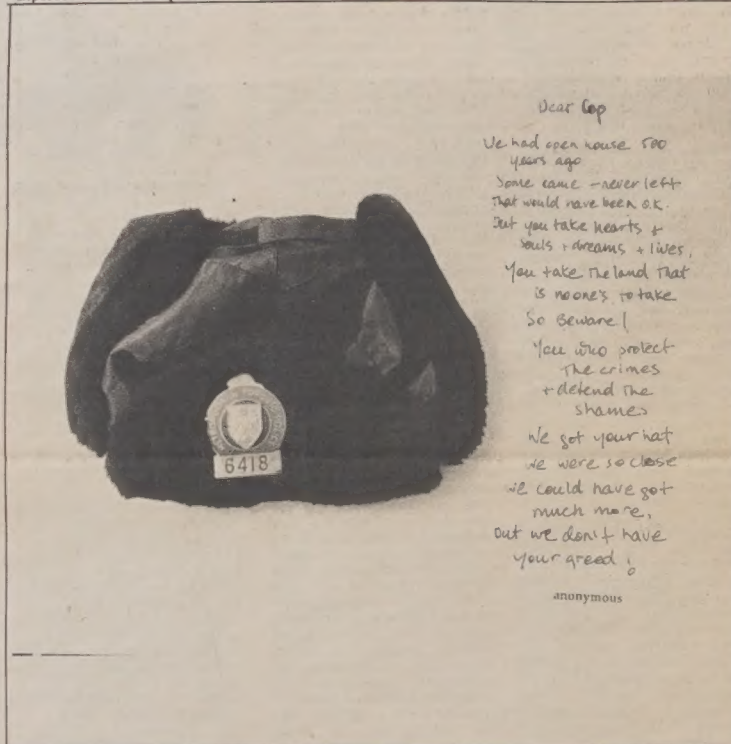 6418
Dear Cop
We had open house 500
years ago
Some came - never left
That would have been O.K.
But you take hearts +
souls + dreams + lives,
You take The land That
is noone's to take
So Beware!
You who protect
The crimes
+ defend The
shames
We got your hat
we were so close
we could have got
much more,
but we don't have
your greed!
anonymous